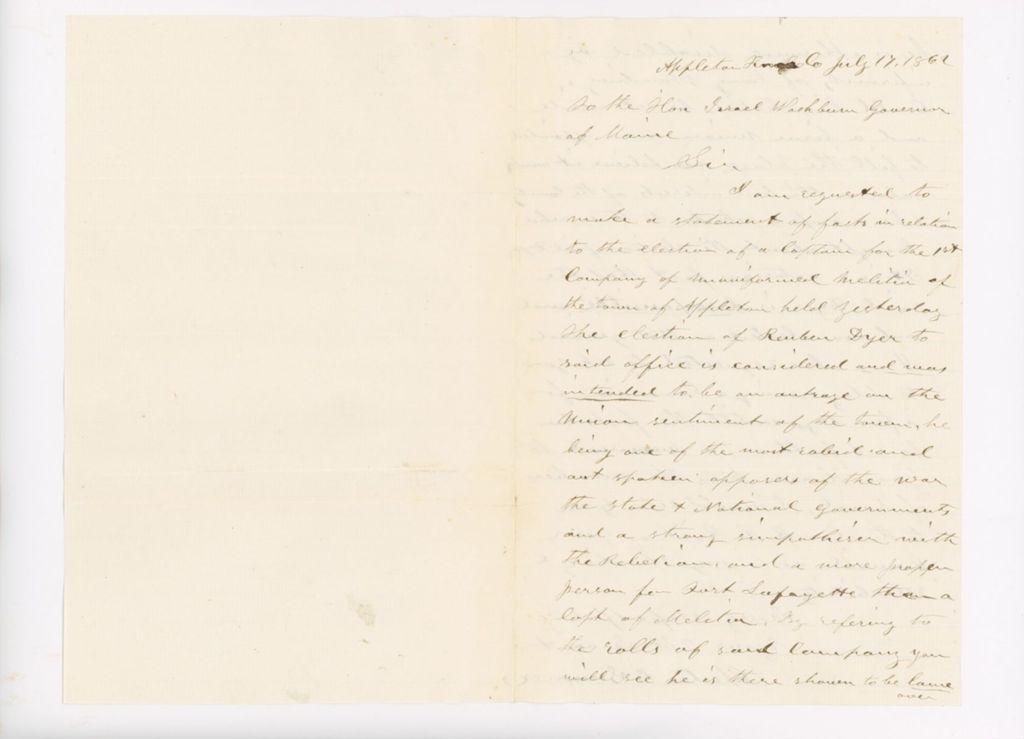 Appleton Co July 17, 1862
To the Hon Israel Washburn Governor
of Maine
Sir
I am requested to
make a statement of facts in relation
to the election of a Captain for the 1st
Company of ununiformed Melitia of
the town of Appleton held yesterday
The election of Reuben Dyer to
said office is considered and was
intended to be an outrage on the
Union sentiment of the town, he
being one of the most rabid and
out spoken opposers of the war
the State & National Governments
and a strong simpathiser with
the Rebelion, and a more proper
person for Fort Lafayette than a
Capt of Melitia. By refering to
the rolls of said Company you
will see he is there shown to be lame
over